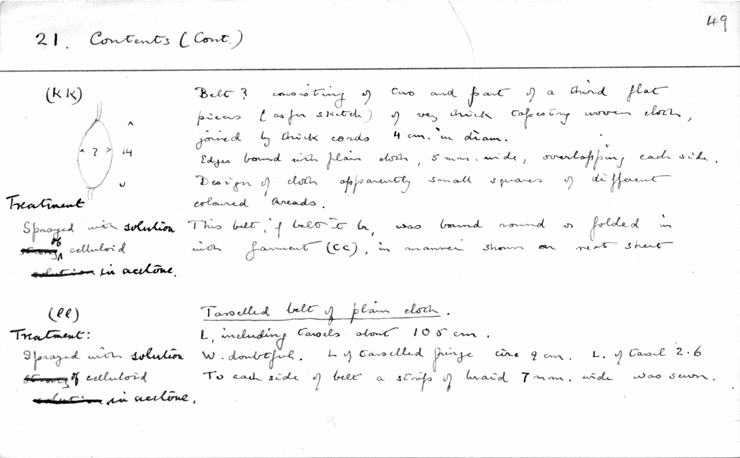 49
21. Contents (Cont.)
(KK)
Belt? consisting of two and part of a third flat
pieces (as for sketch) of very thick tapestry woven cloth,
joined by thick cords 4 cm. in diam.
Edges bound with plain cloth, 5 mm. wide, overlapping each side.
Design of cloth apparently small squares of different
coloured threads.
? 14
Treatment
Sprayed with solution
of celluloid
solution in acetone.
This belt, if belt it be, was bound round or folded in
with garment (CC), in manner shown on next sheet
(ll)
Tasselled belt of plain cloth.
Treatment:
L, including tassels about 105 cm.
Sprayed with solution
W. doubtful. L of tasselled fringe circ 9 cm. L. of tassel 2.6
strong of celluloid
To each side of belt a strip of braid 7 mm. wide was sewn.
solution in acetone.